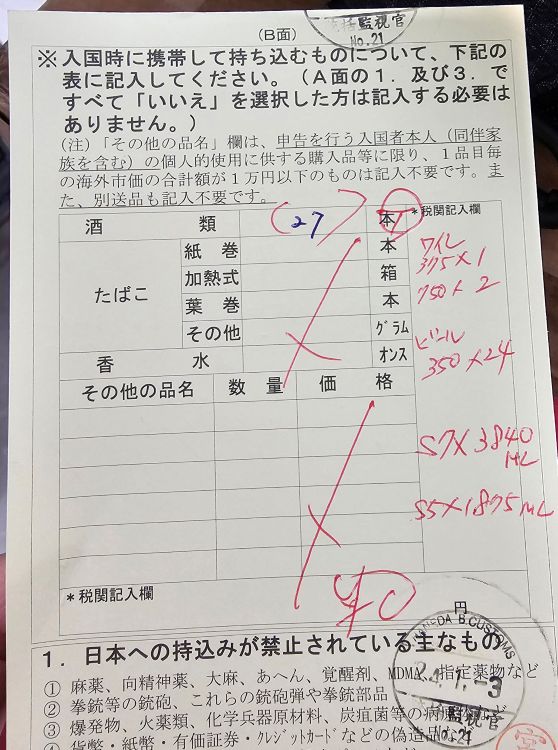 (B面)
括監視官
No.21
※入国時に携帯して持ち込むものについて、下記の
表に記入してください。（A面の1．及び3．で
すべて「いいえ」を選択した方は記入する必要は
ありません。）
（注）「その他の品名」欄は、申告を行う入国者本人（同伴家
族を含む）の個人的使用に供する購入品等に限り、1品目毎
の海外市価の合計額が1万円以下のものは記入不要です。ま
た、別送品も記入不要です。
酒 類 (27) 本 *税関記入欄
たばこ
紙巻 本
加熱式 箱
葉巻 本
その他 グラム
香水 オンス
375×1
750×2
ビール
350×24
その他の品名 数量 価格
S7×3840
ML
S5×1875ML
*税関記入欄
円
HANEDA B. CUSTOMS
24.1.-3
監視官
No.21
1．日本への持込みが禁止されている主なもの
① 麻薬、向精神薬、大麻、あへん、覚醒剤、MDMA、指定薬物など
② 拳銃等の銃砲、これらの銃砲弾や拳銃部品
③ 爆発物、火薬類、化学兵器原材料、炭疽菌等の病原体など
④ 貨幣・紙幣・有価証券・クレジットカードなどの偽造品など